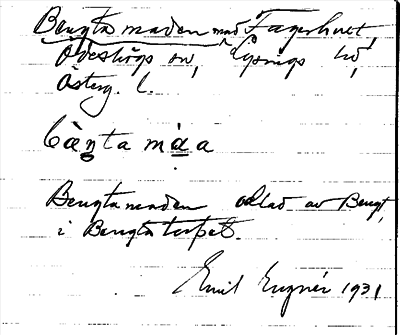 Bengta maden med Fagerhult,
Ödeshögs sn, Lysings hd,
Österg. l.
bàŋta mɑ̀a
Bengtamaden odlad av Bengt,
i Bengtatorpet.
Emil Engnér 1931